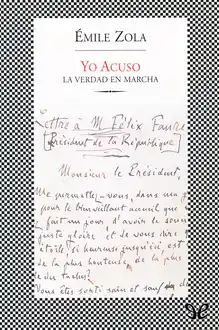 ÉMILE ZOLA
YO ACUSO
LA VERDAD EN MARCHA
Lettre à M. Félix Faure
[Président de la République]
Monsieur le Président,
me permettez-vous, dans ma
pour le bienveillant accueil que
fait un jour, d'avoir le
juste gloire, et de
étoile, si heureuse jusqu'ici, est
de la plus honteuse, de la plus
de taches?
Vous êtes sorti sain et sauf